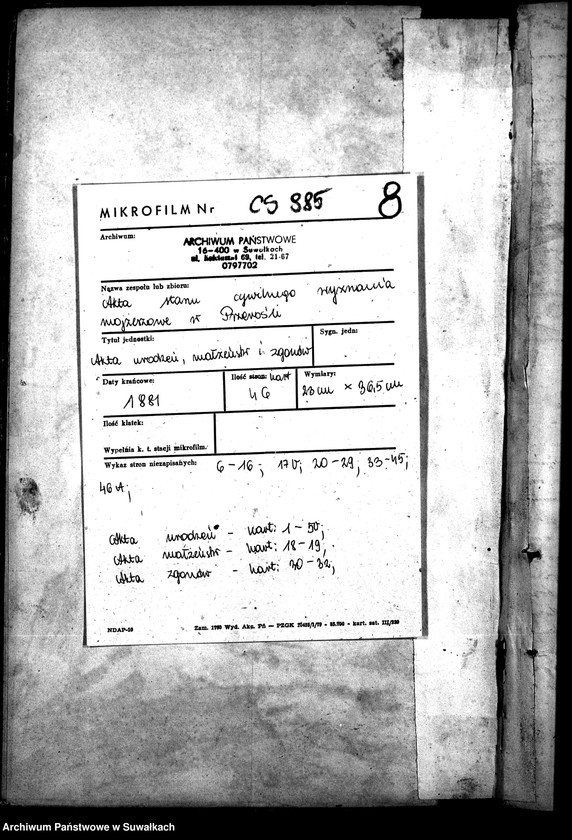 MIKROFILM Nr CS 985 8
Archiwum:
ARCHIWUM PAŃSTWOWE
16-400 w Suwałkach
ul. Kościuszki 69, tel. 21-67
0797702
Nazwa zespołu lub zbioru:
Akta stanu cywilnego wyznania
mojżeszowe w Przerośli
Tytuł jednostki: Sygn. jedn:
Akta urodzeń, małżeństw i zgonów
Daty krańcowe: Ilość stron: kart Wymiary:
1881 46 23 cm × 36,5 cm
Ilość klatek:
Wypełnia k. t. stacji mikrofilm.
Wykaz stron niezapisanych: 6-16; 17v; 20-29; 33-45;
46v;
Akta urodzeń - kart: 1-50;
Akta małżeństw - kart: 18-19;
Akta zgonów - kart: 30-32;
NDAP-20 Zam. 1980 Wyd. Akc. Pń — PZGK
kart. sat. III/320
Archiwum Państwowe w Suwałkach